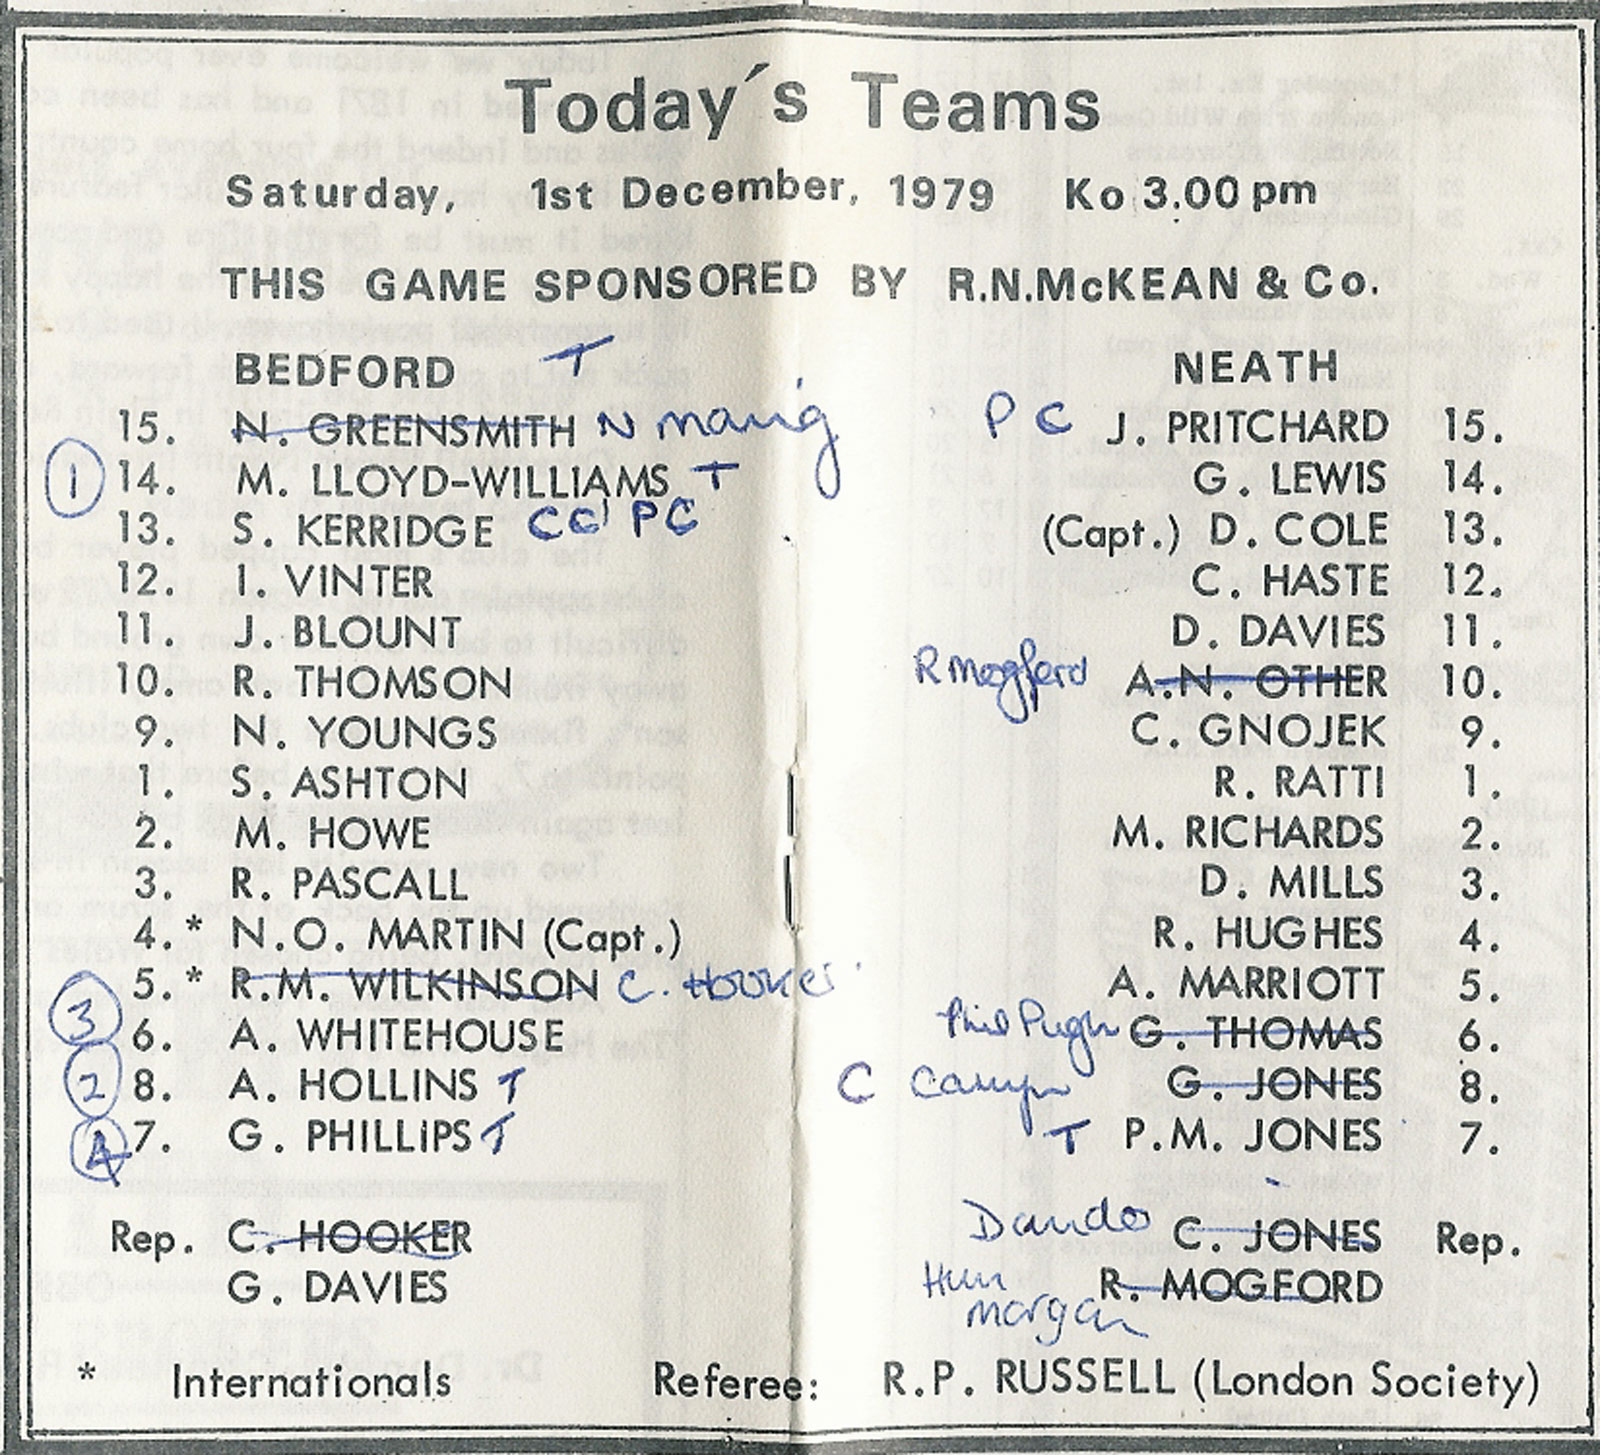 Today's Teams
Saturday, 1st December, 1979 Ko 3.00 pm
THIS GAME SPONSORED BY R.N.McKEAN & Co.
BEDFORD T NEATH
15. N. GREENSMITH N P C J. PRITCHARD 15.
1 14. M. LLOYD-WILLIAMS T G. LEWIS 14.
13. S. KERRIDGE CC' PC (Capt.) D. COLE 13.
12. I. VINTER C. HASTE 12.
11. J. BLOUNT D. DAVIES 11.
10. R. THOMSON R Mogford A.N. OTHER 10.
9. N. YOUNGS C. GNOJEK 9.
1. S. ASHTON R. RATTI 1.
2. M. HOWE M. RICHARDS 2.
3. R. PASCALL D. MILLS 3.
4.* N.O. MARTIN (Capt.) R. HUGHES 4.
5.* R.M. WILKINSON C. Hooker A. MARRIOTT 5.
3 6. A. WHITEHOUSE Phil Pugh G. THOMAS 6.
2 8. A. HOLLINS T C G. JONES 8.
4 7. G. PHILLIPS T T P.M. JONES 7.
Rep. C. HOOKER Dando C. JONES Rep.
G. DAVIES R. MOGFORD
morgan
* Internationals Referee: R.P. RUSSELL (London Society)